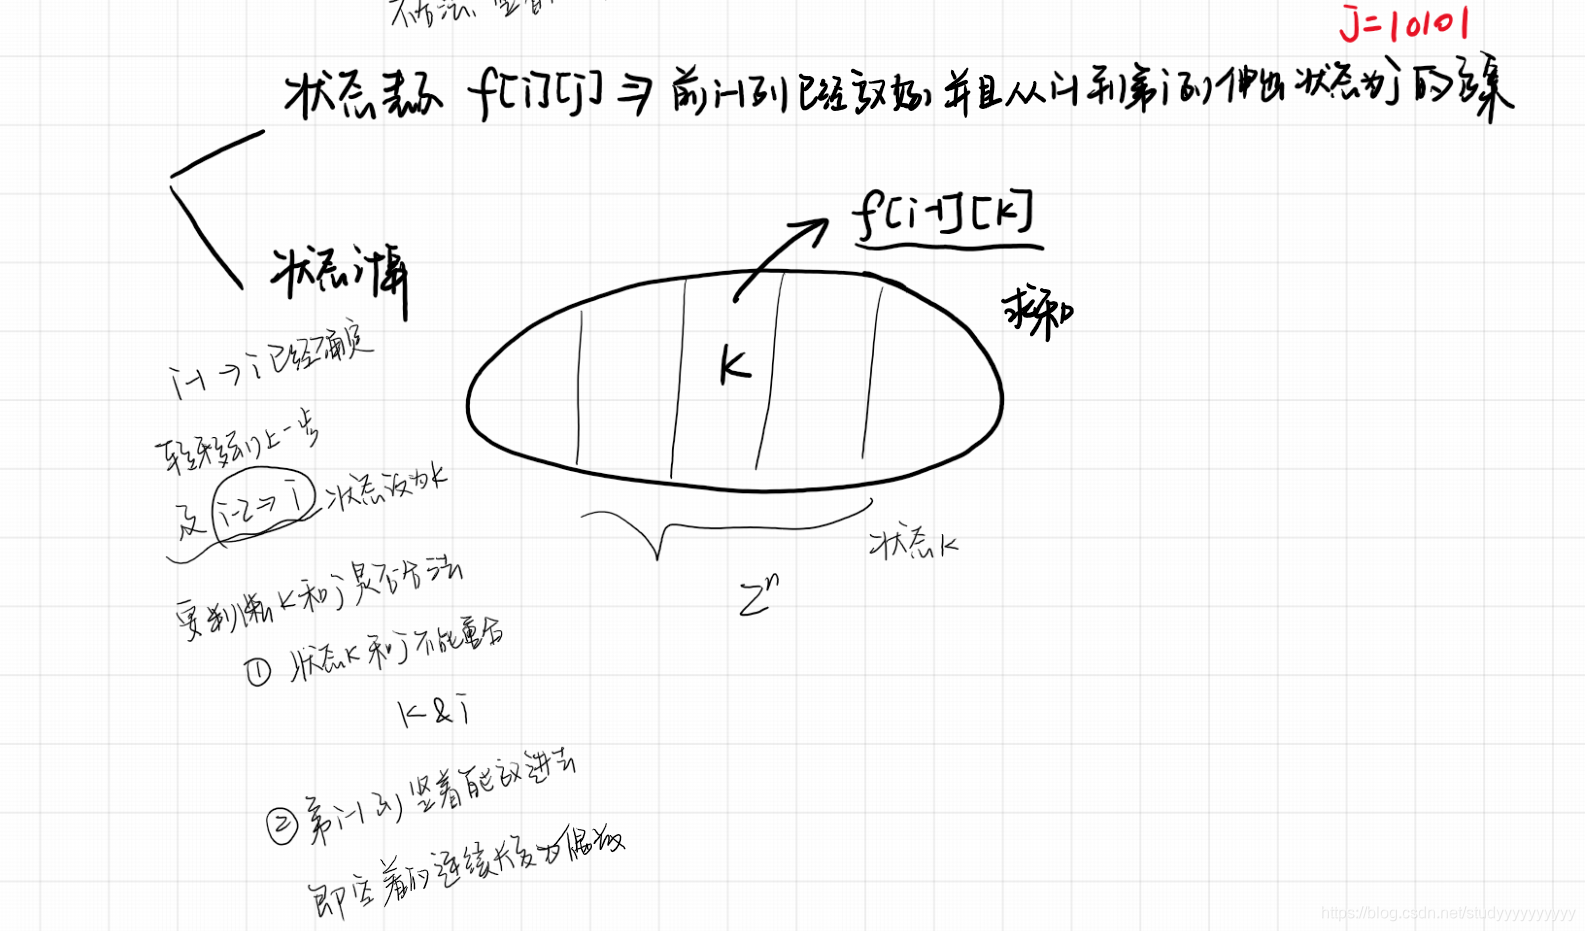 不合法,竖着
j=10101
状态表示 f[i][j] ⇒ 前i-1列已经放好,并且从i-1列到第i列伸出状态为j的方案
f[i-1][k]
状态计算
求和
i-1→i已经确定
k
上一步
及 i-2→i 状态设为k
状态k
2ⁿ
要判断k和j是否合法
① 状态k和j不能重合
k & j
② 第i-1列竖着能放进去
即空着的连续长度为偶数
https://blog.csdn.net/studyyyyyyyyyy